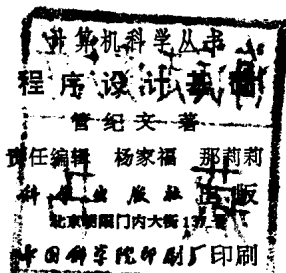 计算机科学丛书
程序设计基础
管纪文 著
责任编辑 杨家福 那莉莉
科学出版社 出版
北京朝阳门内大街 137 号
中国科学院印刷厂印刷